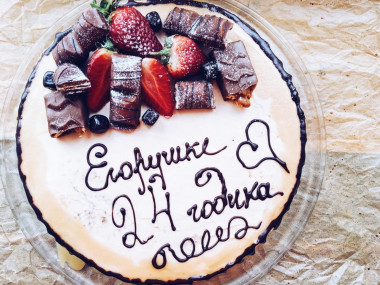 Егорушке
24 годика